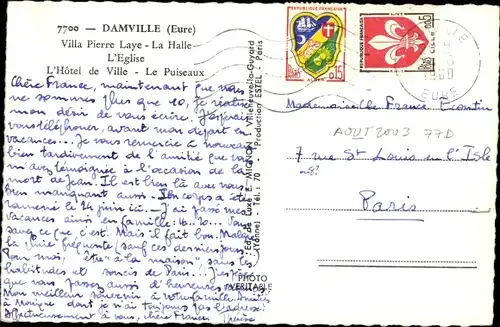 7700 — DAMVILLE (Eure)
Villa Pierre Laye - La Halle
L'Eglise
L'Hôtel de Ville - Le Puiseaux
Chère France, maintenant que nous
ne sommes plus que 10, je réalise
mon désir de vous écrire. J'espérais
vous téléphoner, avant mon départ en
vacances... Je vous remercie à nouveau
bien tardivement de l'amitié que vous
m'avez témoignée à l'occasion de la
mort de Jean. Il est bien là avec nous
bien manquant aussi. Son corps a été
ramené le 14 juin ici. J'ai passé mes
vacances ainsi en famille: 16.. 20.. Vous
savez ce que c'est. Mais il fait bon. Malgré
la pluie fréquente (sauf ces derniers jours.
Pour moi, être "à la maison" sans les
habitudes et soucis de Paris...! J'espère
que vous passez aussi d'heureuses vacances.
Mon meilleur souvenir à votre famille. Amitiés
à Monique dont je n'ai toujours pas l'adresse!
Affectueusement à vous, chère France
Edit. de Luxe E. MIGNON - Villeneuve-la-Guyard
(Yonne) - Tél.: 70 Production ESTEL - Paris
PHOTO
VERITABLE
REPUBLIQUE FRANÇAISE
0,15
0,05
LILLE
EURE
Mademoiselle France
AOUT 2003 77D
7 rue St Louis en l'Isle
Paris